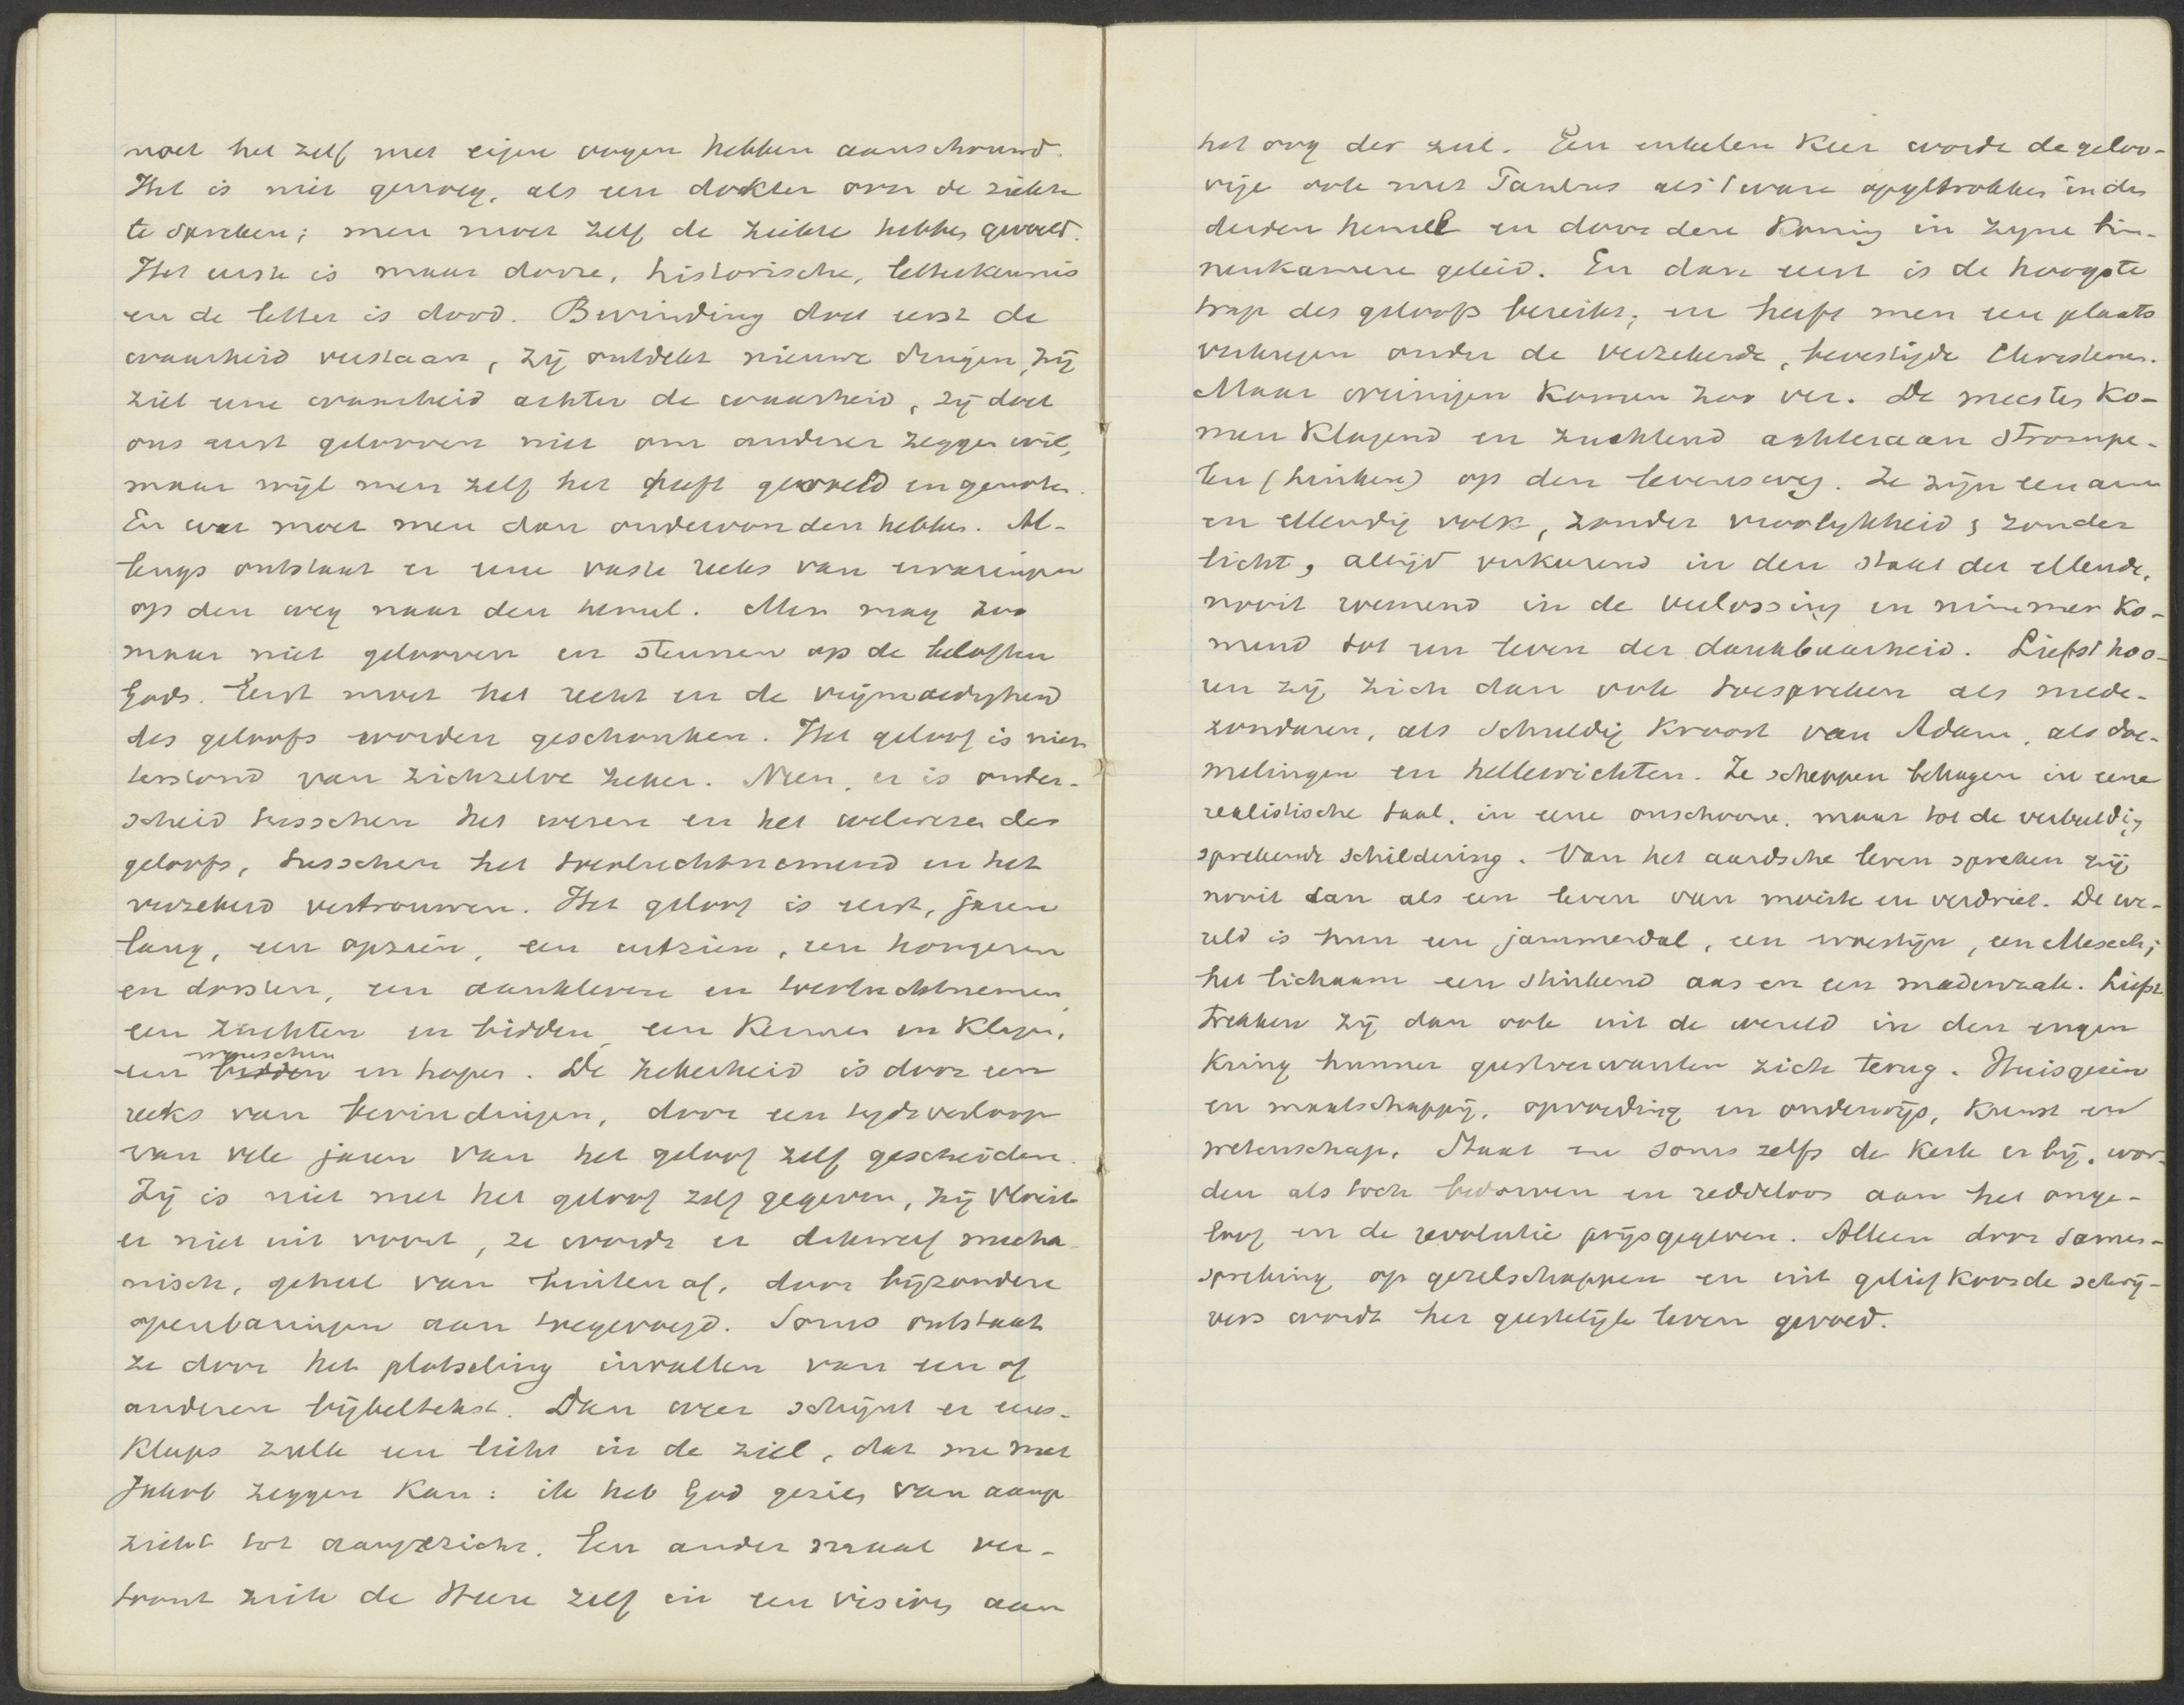 moet het zelf met eigen oogen hebben aanschouwd.
Het is niet genoeg, als een dokter over de ziekte
te spreken; men moet zelf de ziekte hebben gevoeld.
Het eerste is maar dorre, historische, letterkennis
en de letter is dood. Bevinding doet eerst de
waarheid verstaan, zij ontdekt nieuwe dingen, zij
ziet eene waarheid achter de waarheid, zij doet
ons eerst gelooven niet om anderer zeggen wil,
maar wijl men zelf het heeft gevoeld en genoten.
En wat moet men dan ondervonden hebben. Al-
lengs ontstaat er eene vaste reeks van ervaringen
op den weg naar den hemel. Men mag zoo
maar niet gelooven en steunen op de beloften
Gods. Eerst moet het recht en de vrijmoedigheid
des geloofs worden geschonken. Het geloof is niet
terstond van zichzelve zeker. Neen, er is onder-
scheid tusschen het wezen en het welwezen des
geloofs, tusschen het toevluchtnemend en het
verzekerd vertrouwen. Het geloof is eerst, jaren
lang, een opzien, een uitzien, een hongeren
en dorsten, een aankleven en toevluchtnemen,
een zuchten en bidden, een kermen en klagen,
een wenschen en hopen. De zekerheid is door een
reeks van bevindingen, door een tijdsverloop
van vele jaren van het geloof zelf gescheiden.
Zij is niet met het geloof zelf gegeven, zij vloeit
er niet uit voort, ze wordt er dikwerf mecha-
nisch, geheel van buiten af, door bijzondere
openbaringen aan toegevoegd. Soms ontstaat
ze door het plotseling invallen van een of
anderen bijbeltekst. Dan weer schijnt er eens-
klaps zulk een licht in de ziel, dat me met
Jakob zeggen kan: ik heb God gezien van aange
zicht tot aangezicht. Een ander maal ver-
toont zich de Heere zelf in een visioen aan
het oog der ziel. Een enkelen keer wordt de geloo-
vige ook met Paulus als 't ware opgetrokken in den
derden hemel en door den Koning in zijne bin-
nenkamere geleid. En dan eerst is de hoogste
trap des geloofs bereikt, en heeft men een plaats
verkregen onder de verzekerde, bevestigde Christenen.
Maar weinigen komen zoo ver. De meesten ko-
men klagend en zuchtend achteraan strompe-
len (hinken) op den levensweg. Ze zijn een arm
en ellendig volk, zonder vroolijkheid, zonder
licht, altijd verkeerend in den staat der ellende,
nooit roemend in de verlossing en nimmer ko-
mend tot een leven der dankbaarheid. Liefst hoo-
ren zij zich dan ook toespreken als mede-
zondaren, als schuldig kroost van Adam, als doe-
melingen en hellewichten. Ze scheppen behagen in eene
realistische taal, in eene onschoone, maar tot de verbeelding
sprekende schildering. Van het aardsche leven spreken zij
nooit dan als een leven van moeite en verdriet. De we-
reld is hun een jammerdal, een woestijn, een Mesech;
het lichaam een stinkend aas en een madenzak. Liefst
trekken zij dan ook uit de wereld in den engen
kring hunner geestverwanten zich terug. Huisgezin
en maatschappij, opvoeding en onderwijs, kunst en
wetenschap, Staat en soms zelfs de Kerk er bij, wor-
den als toch bedorven en reddeloos aan het onge-
loof en de revolutie prijsgegeven. Alleen door samen-
spreking op gezelschappen en uit geliefkoosde schrij-
vers wordt het geestelijk leven gevoed.